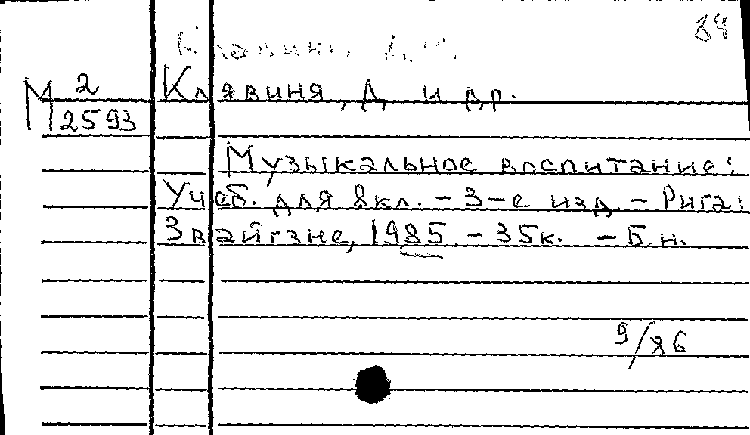 84
М 2
2593
Клявиня, Д. и др.
Музыкальное воспитание:
Учеб. для 8кл. - 3-е изд. - Рига:
Звайгзне, 1985. - 35к. - Б.н.
9/86